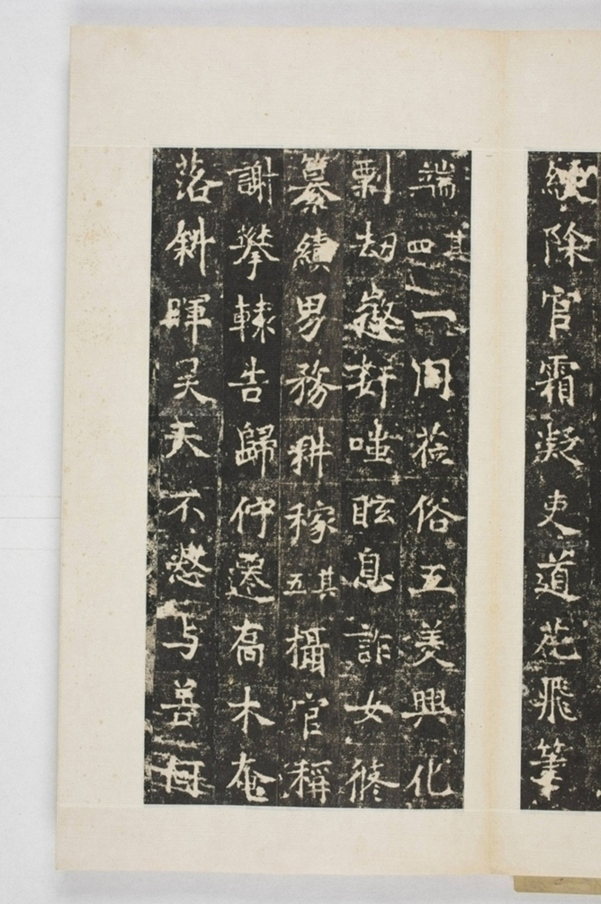 除官霜凝吏道花飛筆
端其四一同莅俗五美興化
剽劫奸嗤眩息詐女脩
纂績男務耕稼其五攝官稱
謝攀轅告歸仲遷高木奄
落斜暉昊天不憖与善何